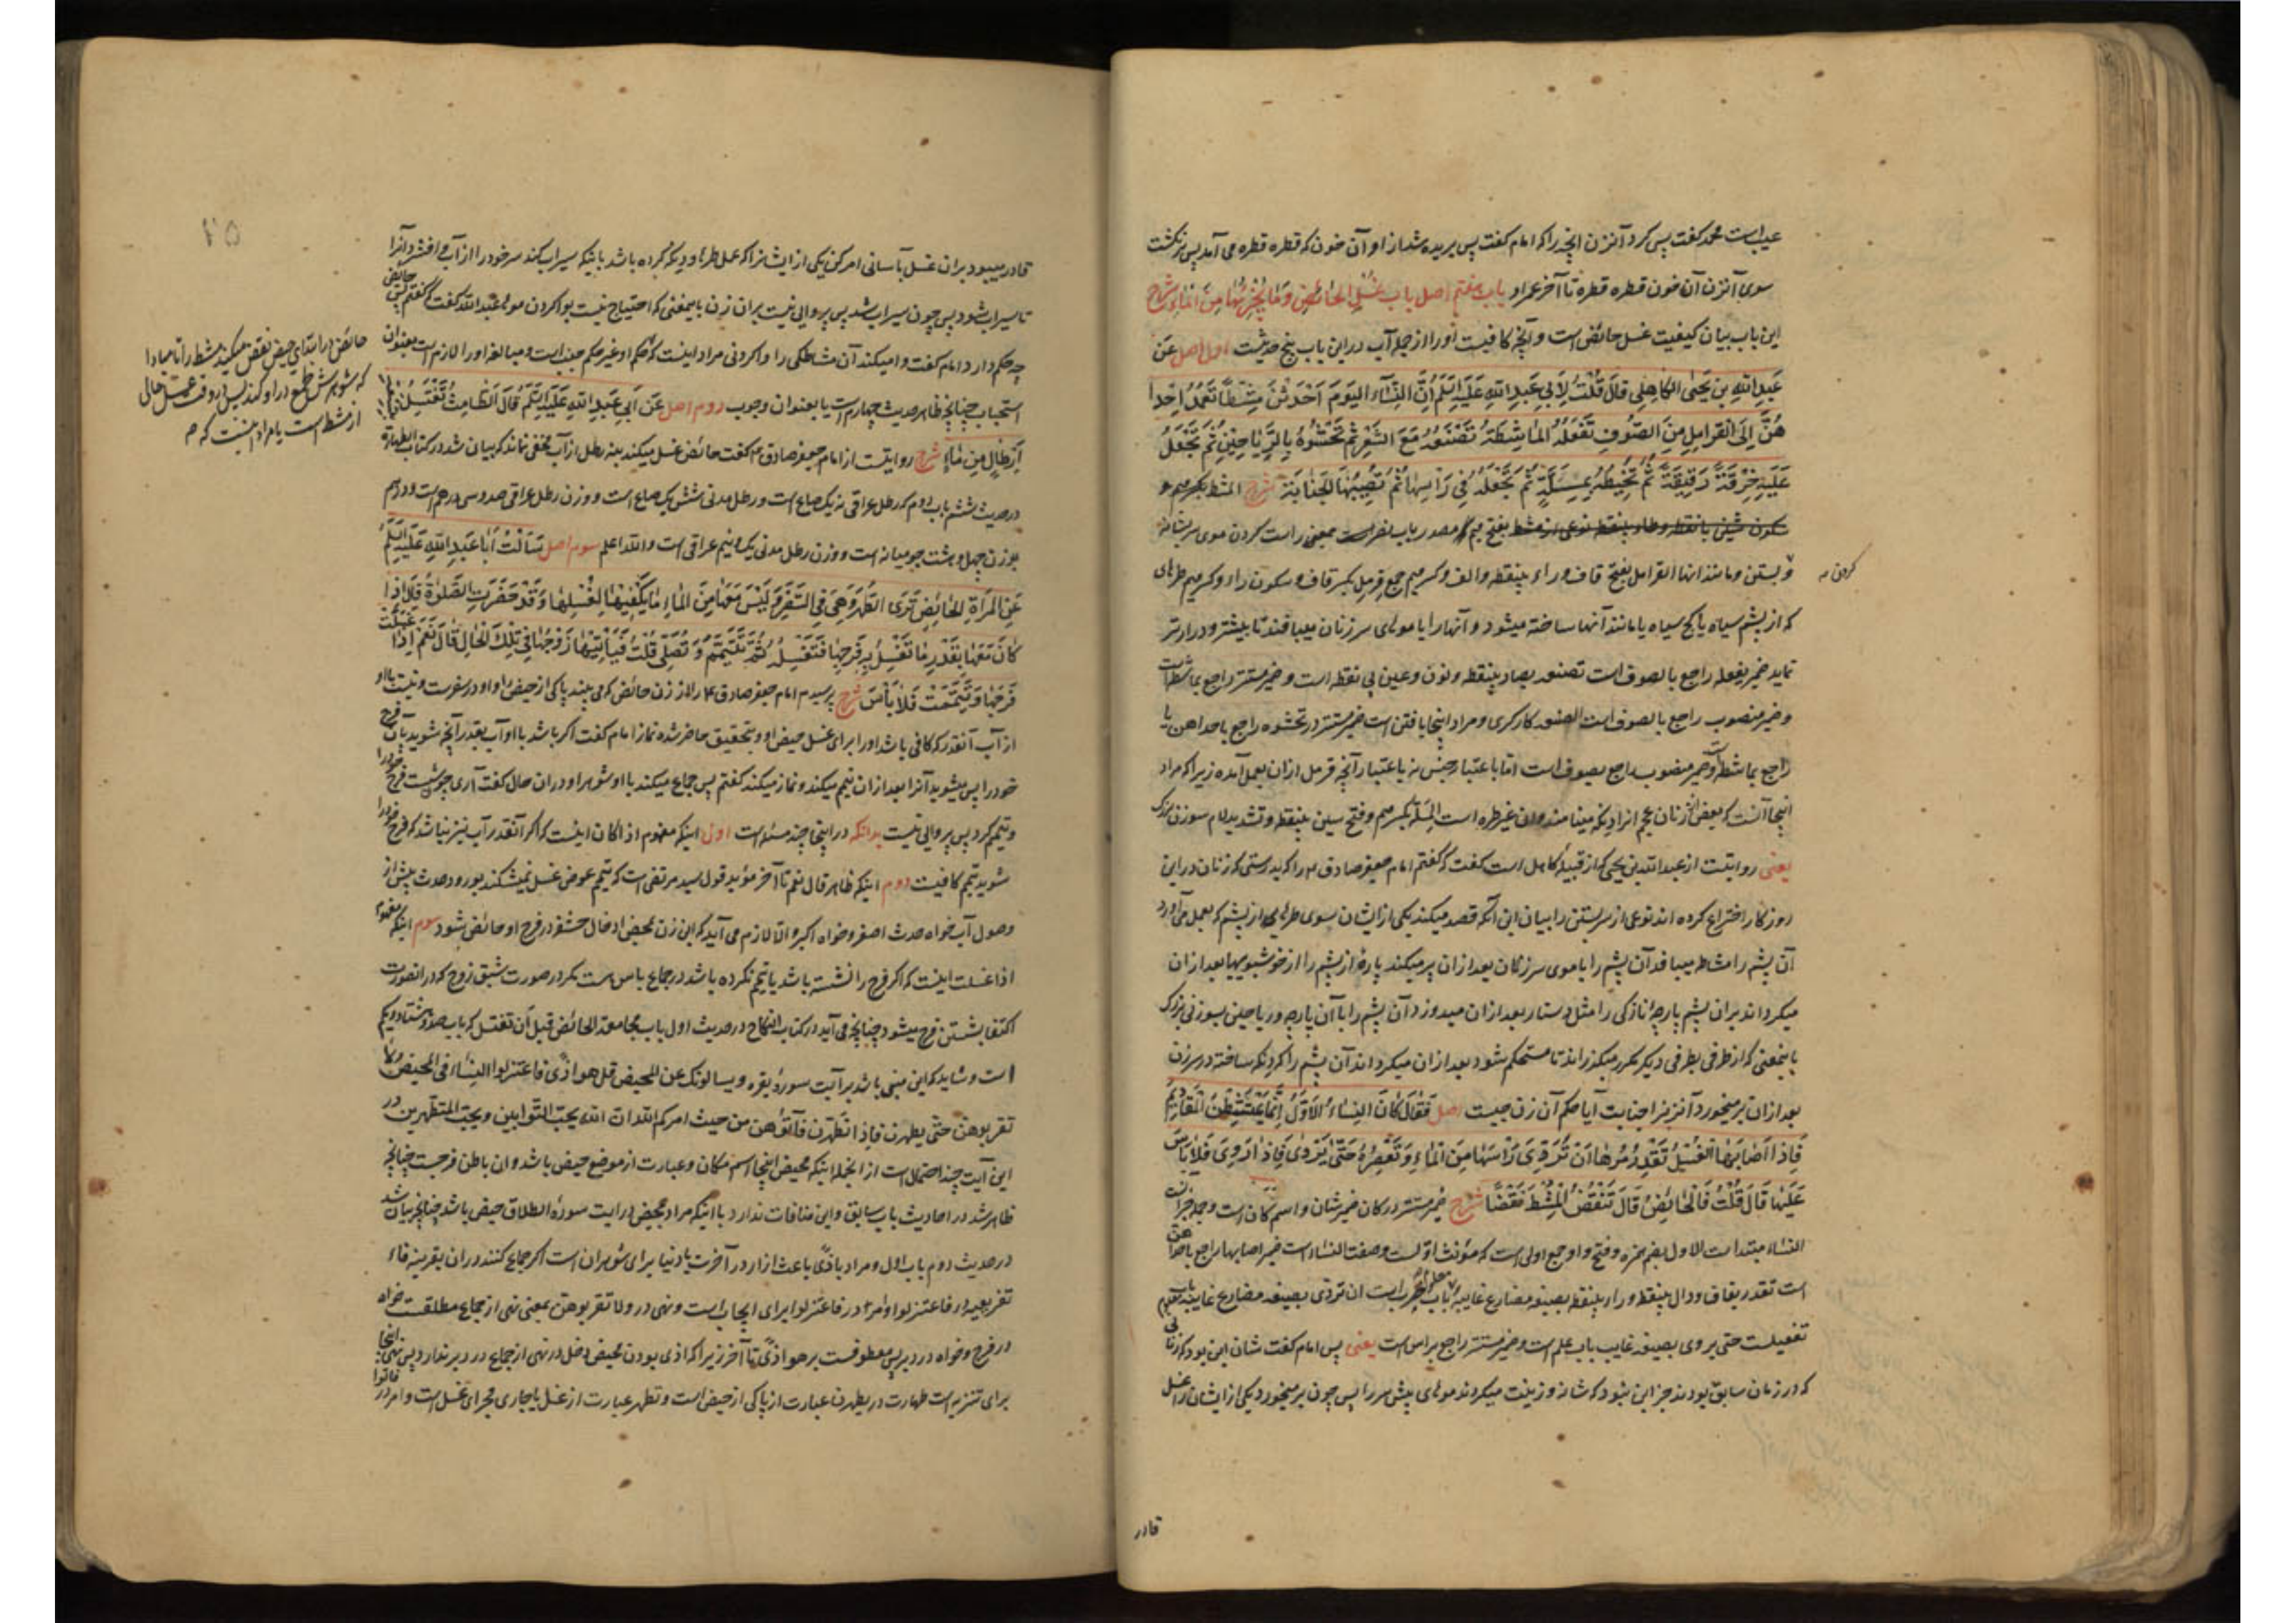 عیبست محمد کفت پس کرد آنزن آنچه را که امام کفت پس بریده شد از او آن خون که قطره قطره می آمد پس برنکشت
سوی آنزن آن خون قطره قطره تا آخر عمر او باب هفتم اصل باب غسل الحائض وما یجزیها من الماء شرح
این باب بیان کیفیت غسل حائض است و آنچه کافیست او را از جمله آب در این باب پنج حدیثست اول اصل عَن
عَبدِ اللهِ بنِ یَحیَی الکاهِلی قالَ قُلتُ لِاَبی عَبدِ اللهِ عَلَیهِ السَّلَم اِنَّ النِّسآءَ الیَومَ اَحدَثنَ مِشطًا تَعمَدُ اِحدٰا
هُنَّ اِلَی القَرامِلِ مِنَ الصّوفِ تَفعَلُهُ المٰاشِطَةُ تَصنَعُهُ مَعَ الشَّعرِ ثُمَّ تَحشُوهُ بِالرَّیٰاحینِ ثُمَّ تَجعَلُ
عَلَیهِ خِرقَةً رَقیقَةً ثُمَّ تَخیطُهُ بِمِسَلَّةٍ ثُمَّ تَجعَلُهُ فی رَأسِهٰا ثُمَّ تُصیبُهَا الجَنٰابَةُ شرح المشط بکسر میم و
سکون شین با نقطه و طاء بینقطه نوعی از مشط بفتح میم مصدر باب نصر است بمعنی راست کردن موی سر بشانه
و بستن و مانند انها القرامل بفتح قاف و راء بینقطه والف و کسر میم جمع قرمل بکسر قاف و سکون راء و کسر میم طرهای
کردن
که از پشم سیاه یا کج سیاه یا مانند آنها ساخته میشود و آنها را با موهای سر زنان میبافند تا بیشتر و درازتر
نماید ضمیر یفعله راجع بالصوف است تصنعه بصاد بینقطه و نون و عین بی نقطه است و ضمیر مستتر راجع بماشطه است
و ضمیر منصوب راجع بالصوف است الصنع کارکری و مراد اینجا بافتن است ضمیر مستتر در تحشوه راجع باحداهن یا
راجع بماشطه است و ضمیر منصوب راجع بصوف است اما باعتبار جنس نه باعتبار آنچه قرمل از ان بعمل آمده زیرا که مراد
اینجا آنست که بعض زنان عجم انرا دیکه مینامند و ان غیر طره است المسلة بکسر میم و فتح سین بینقطه و تشدید لام سوزن بزرک
یعنی روایتست از عبدالله بن یحیی که از قبیلۀ کاهل است کفت که کفتم امام جعفر صادق ع را که بدرستی که زنان در این
روزکار اختراع کرده اند نوعی از سر بستن را بیان این آنکه قصد میکند یکی از ایشان سوی طرهایی از پشم که بعمل می آورد
آن پشم را مشاطه میبافد آن پشم را با موی سر زنان بعد از ان پر میکند پارۀ از پشم را از خوشبویها بعد از ان
میکرداند بران پشم پارچۀ نازکی را مثل دستار بعد از ان میدوزد آن پشم را با آن پارچه و ریاحین بسوزنی بزرک
باینمعنی که از طرفی بطرفی دیکر مکرر میکذراند تا مستحکم شود بعد از ان میکرداند آن پشم را که دیکه ساخته در سر زن
بعد از ان بر میخورد آنزن را جنابت آیا حکم آن زن چیست اصل فَقٰالَ کٰانَ النِّسٰاءُ الاُوَلُ اِنَّمٰا یَمتَشِطنَ المَقٰادیمَ
فَاِذٰا اَصٰابَهَا الغُسلُ تَقدِرُ مُرهٰا اَن تُرَوِّیَ رَأسَهٰا مِنَ المٰاءِ وَ تَعصِرُهُ حَتّیٰ یَروٰی فَاِذٰا رَوِیَ فَلٰا بَأسَ
عَلَیهٰا قٰالَ قُلتُ فَالحٰائِضُ قٰالَ تَنقُضُ المُشطَ نَقضًا شرح ضمیر مستتر در کان ضمیر شان و اسم کان است و جمله خبر آنست
النساء مبتداست الاول بضم همزه و فتح واو جمع اولی است که مؤنث اول است و صفت النساء است ضمیر اصابها راجع باحداهن
است تقدر بقاف و دال بینقطه و راء بینقطه بصیغه مضارع غایبه معلوم باب ضرب است ان تروّی بصیغه مضارع غایبه معلوم باب
تفعیلست حتی یروی بصیغه غایب باب علم است و ضمیر مستتر راجع براس است یعنی پس امام کفت شان این بود که زنانی
که در زمان سابق بودند جز این نبود که شانه و زینت میکردند موهای پیش سر را پس چون بر میخورد یکی از ایشان را غسل
قادر
قادر میبود بران غسل بآسانی امر کن یکی از ایشانرا که عمل طره و دیکه کرده باشد باینکه سیراب کند سر خود را از آب و افشرد آنرا
تا سیراب شود پس چون سیراب شد پس پروایی نیست بران زن باینمعنی که احتیاج نیست بوا کردن موها عبدالله کفت که کفتم پس حائض
چه حکم دارد امام کفت وا میکند آن مشاطکی را وا کردنی مراد اینست که حکم او غیر حکم جنب است و مبالغه او را لازم است بعنوان
استحباب چنانچه ظاهر حدیث چهارم است یا بعنوان وجوب دوم اصل عَن اَبی عَبدِ اللهِ عَلَیهِ السَّلَم قٰالَ الطّٰامِثُ تَغتَسِلُ بِتِسعَةِ
اَرطٰالٍ مِن مٰاءٍ شرح روایتست از امام جعفر صادق ع کفت حائض غسل میکند بنه رطل از آب مخفی نماند که بیان شد در کتاب الطهارة
در حدیث ششم باب دوم که رطل عراقی نه یک صاع است و رطل مدنی شش یک صاع است و وزن رطل عراقی صد و سی درهم است و درهم
بوزن چهل و هشت جو میانه است و وزن رطل مدنی یک و نیم عراقی است والله اعلم سوم اصل سَاَلتُ اَبٰا عَبدِ اللهِ عَلَیهِ السَّلَم
عَنِ المَرأَةِ الحٰائِضِ تَرَی الطُّهرَ وَهِیَ فِی السَّفَرِ وَ لَیسَ مَعَهٰا مِنَ المٰاءِ مٰا یَکفیهٰا لِغُسلِهٰا وَ قَد حَضَرَتِ الصَّلٰوةُ قٰالَ اِذٰا
کٰانَ مَعَهٰا بِقَدرِ مٰا تَغسِلُ بِهِ فَرجَهٰا فَتَغسِلُهُ ثُمَّ تَتَیَمَّمُ وَ تُصَلّی قُلتُ فَیَأتیهٰا زَوجُهٰا فی تِلکَ الحٰالِ قٰالَ نَعَم اِذٰا غَسَلَت
فَرجَهٰا وَ تَیَمَّمَت فَلٰا بَأسَ شرح پرسیدم امام جعفر صادق ع را از زن حائض که می بیند پاکی از حیض را و او در سفرست و نیست با او
از آب آنقدر که کافی باشد او را برای غسل حیض او و بتحقیق حاضر شده نماز امام کفت اکر باشد با او آب بقدر آنچه شوید بآن فرج
خود را پس میشوید آنرا بعد از ان تیمم میکند و نماز میکند کفتم پس جماع میکند با او شوهر او در ان حال کفت آری چون شست فرج خود را
و تیمم کرد پس پروایی نیست بدانکه در اینجا چند مسئله است اول اینکه مفهوم اذا کان اینست که اکر آنقدر آب نیز نباشد که فرج خود را
شوید تیمم کافیست دوم اینکه ظاهر قال نعم تا آخر مؤید قول سید مرتضی است که تیمم عوض غسل نمیشکند بورود حدث پیش از
وصول آب خواه حدث اصغر و خواه اکبر و الا لازم می آید که این زن بمحض ادخال حشفه در فرج او حائض شود سوم اینکه مفهوم
اذا غسلت اینست که اکر فرج را نشسته باشد یا تیمم نکرده باشد در جماع باس هست مکر در صورت شبق زوج که در انصورت
اکتفا بشستن فرج میشود چنانچه می آید در کتاب النکاح در حدیث اول باب مجامعة الحائض قبل ان تغتسل که باب صد و هشتاد و یکم
است و شاید که این مبنی باشد بر آیت سورۀ بقره و یسالونک عن المحیض قل هو اذًی فاعتزلوا النساء فی المحیض ولا
تقربوهن حتی یطهرن فاذا تطهرن فاتوهن من حیث امرکم الله ان الله یحب التوابین و یحب المتطهرین در
این آیت چند احتمال است از انجمله اینکه محیض اینجا اسم مکان و عبارت از موضع حیض باشد و ان باطن فرجست چنانچه
ظاهر شد در احادیث باب سابق و این منافات ندارد با اینکه مراد بمحیض در آیت سورۀ الطلاق حیض باشد چنانچه بیان شد
در حدیث دوم باب اول و مراد باذًی باعث ازار در آخرت یا دنیا برای شوهران است اکر جماع کنند در ان بقرینه فاء
تفریعیه در فاعتزلوا و امر در فاعتزلوا برای ایجاب است و نهی در ولا تقربوهن بمعنی نهی از جماع مطلقست خواه
در فرج و خواه در دبر پس معطوفست بر هو اذًی تا آخر زیرا که اذی بودن محیض دخل در نهی از جماع در دبر ندارد پس نهی اینجا
برای تنزیه است طهارت در یطهرن عبارت از پاکی از حیض است و تطهر عبارت از غسل یا جاری مجرای غسل است و امر در فاتوا
حائض در ابتدای حیض نقض میکند مشط را تا مبادا
که شوهرش طمع در او کند پس در وقت غسل خالی
از مشط است یا مراد اینست که